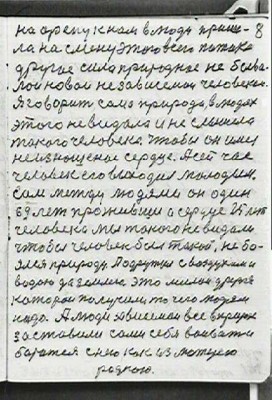 на арену к нам в люди пришла 8
ла на смену этого всего потока
другое сила природное не быва
лой новой независимой человеком.
Я говорит сама природа, в людях
этого не видала и не слышала
такого человека чтобы он имел
неизношеное сердце. А сей час
человек выходил молодым,
сам между людями он один
69 лет проживши а сердце 25 лет
человека мы такого не видали
чтобы человек был такой, не бо-
ялся природы. Подружил с воздухом и
водою да землею. это милой друзья
которое получили то чего людям
надо. А люди
заставили сами себя воевати
боротся с нею как из лютую